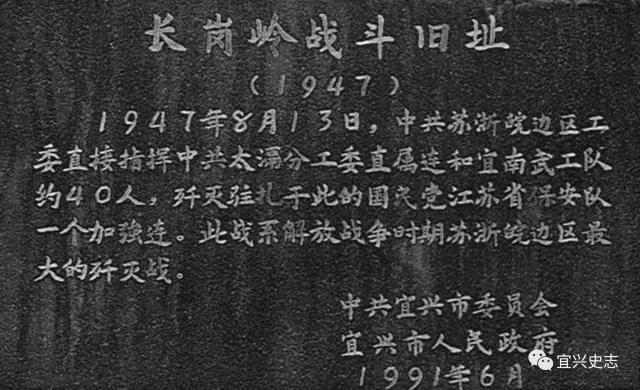 长岗岭战斗旧址
（1947）
1947年8月13日，中共苏浙皖边区工
委直接指挥中共太滆分工委直属连和宜南武工队
约40人，歼灭驻扎于此的国民党江苏省保安队
一个加强连。此战系解放战争时期苏浙皖边区最
大的歼灭战。
中共宜兴市委员会
宜兴市人民政府
1991年6月
宜兴史志